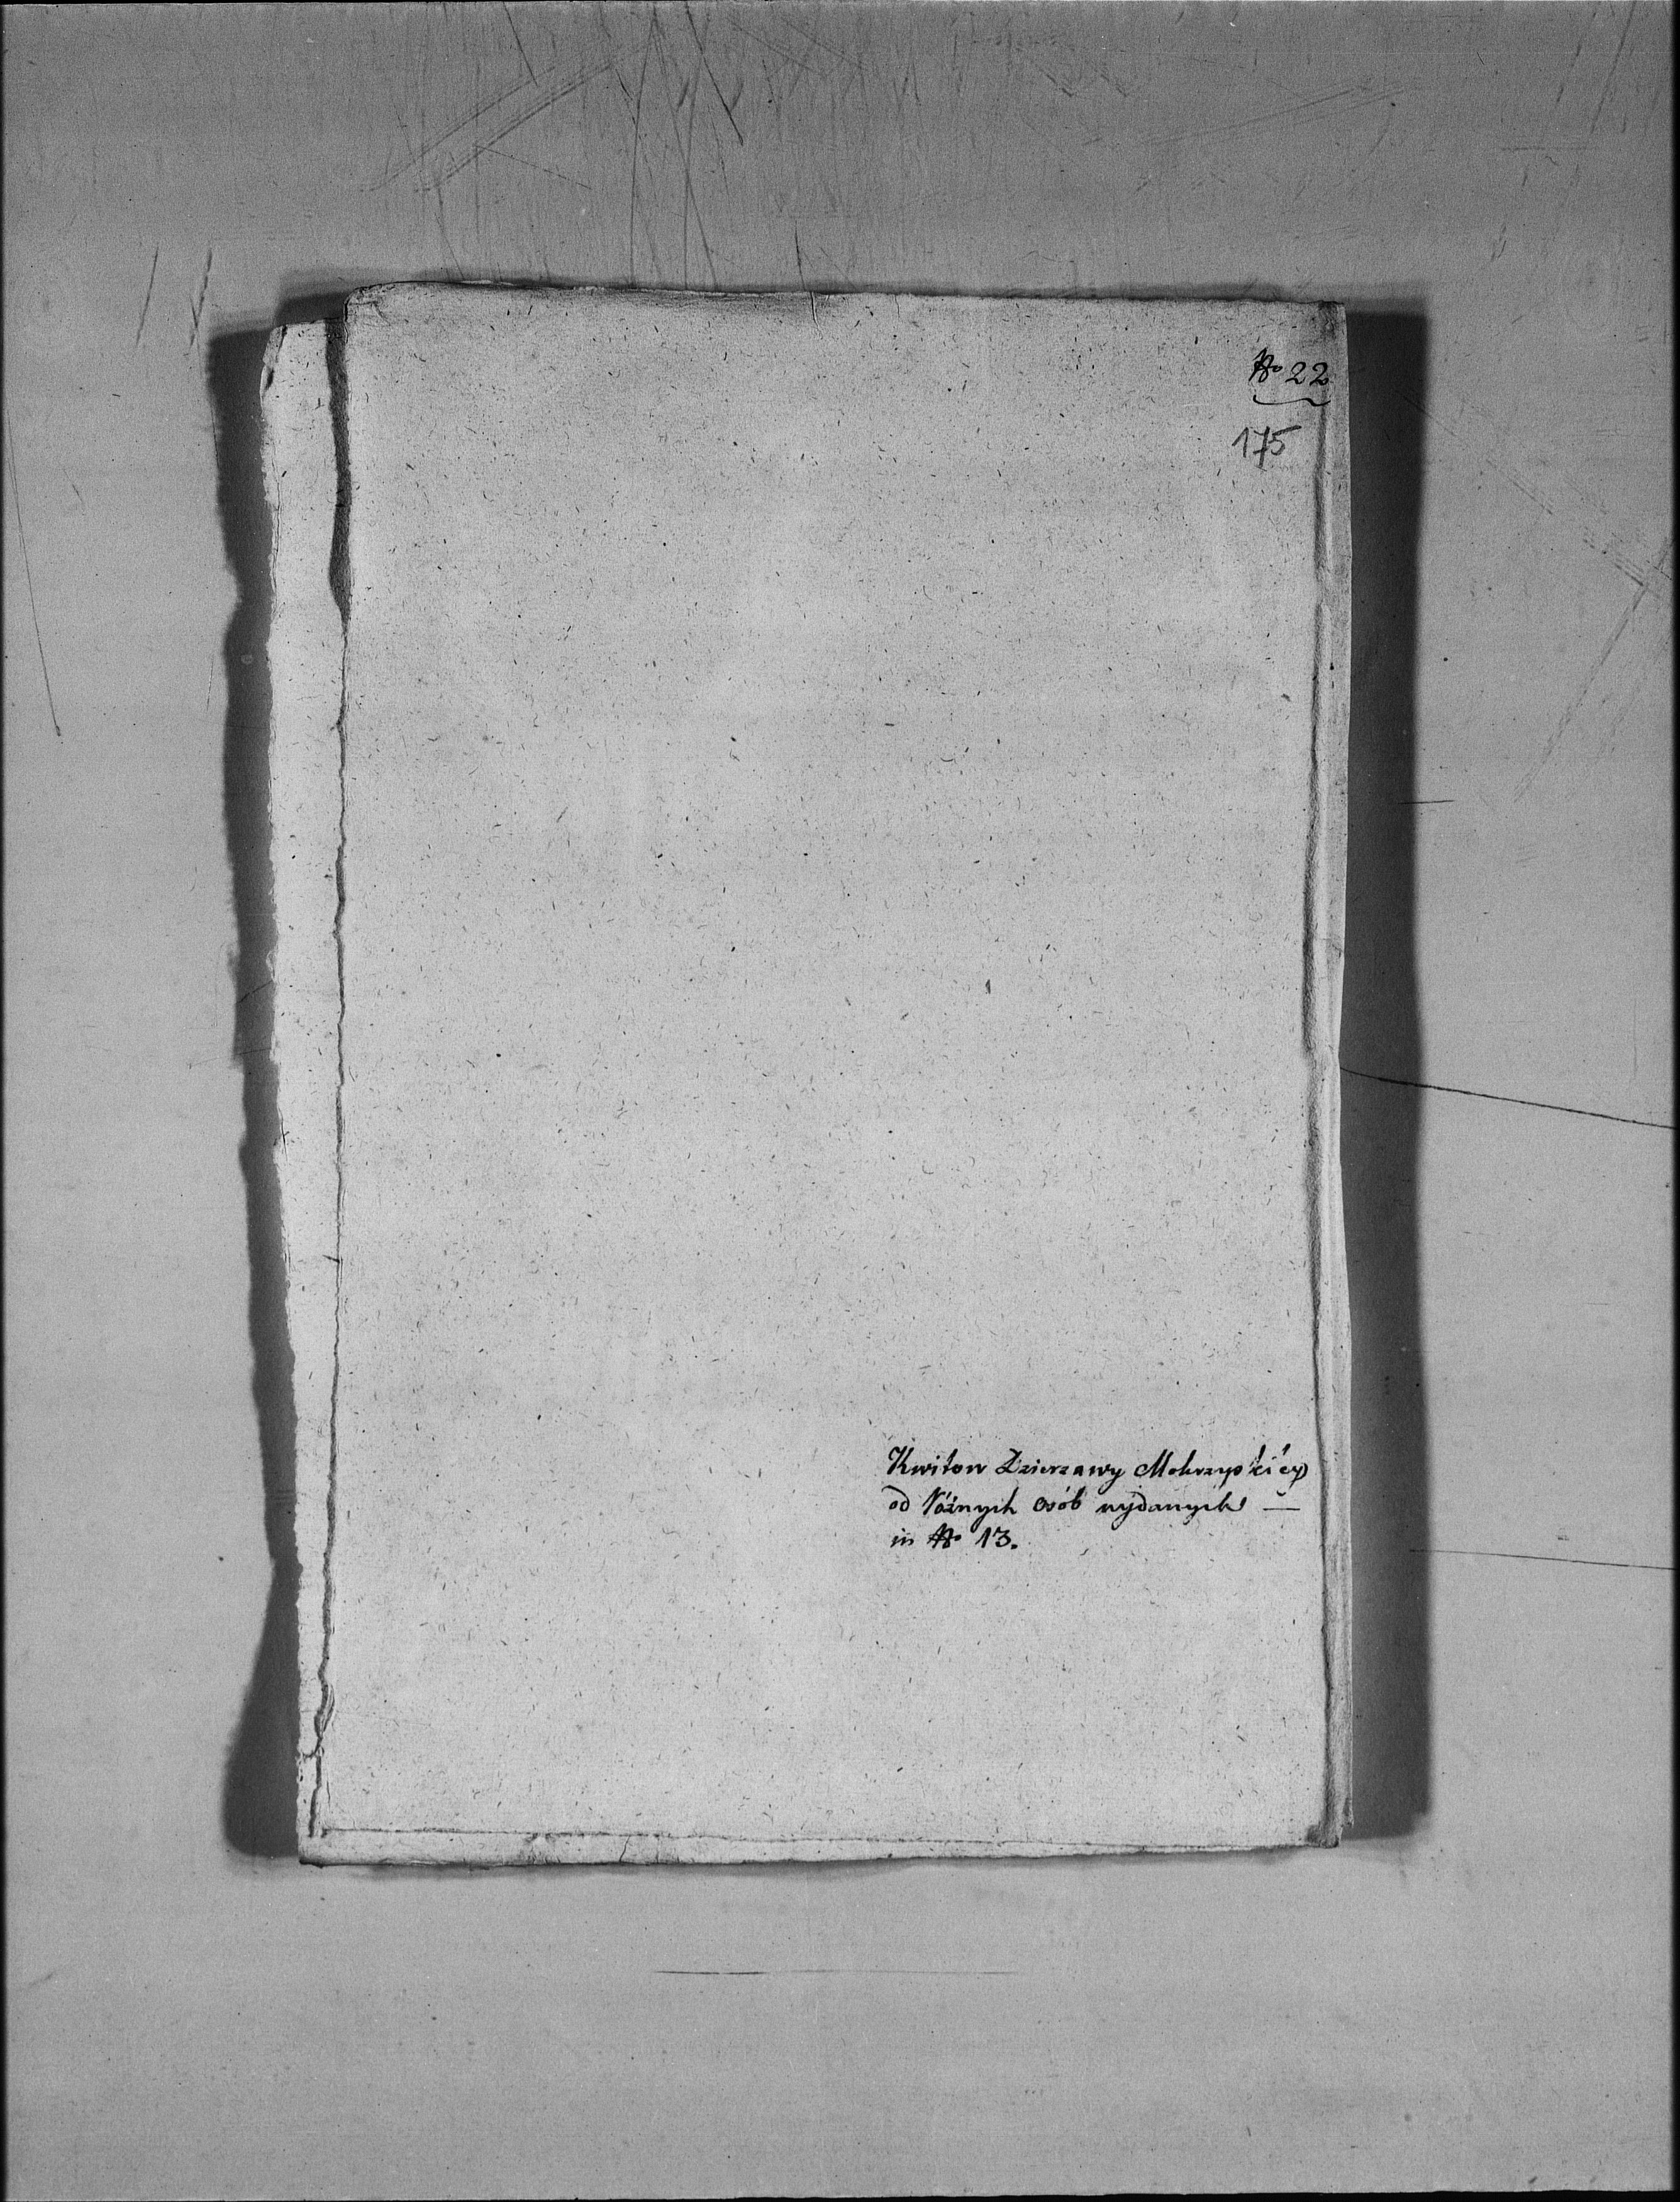 No 22
175
Kwitow Dzierzawy Mokrzyskiey
od różnych osób wydanych —
in No 13.